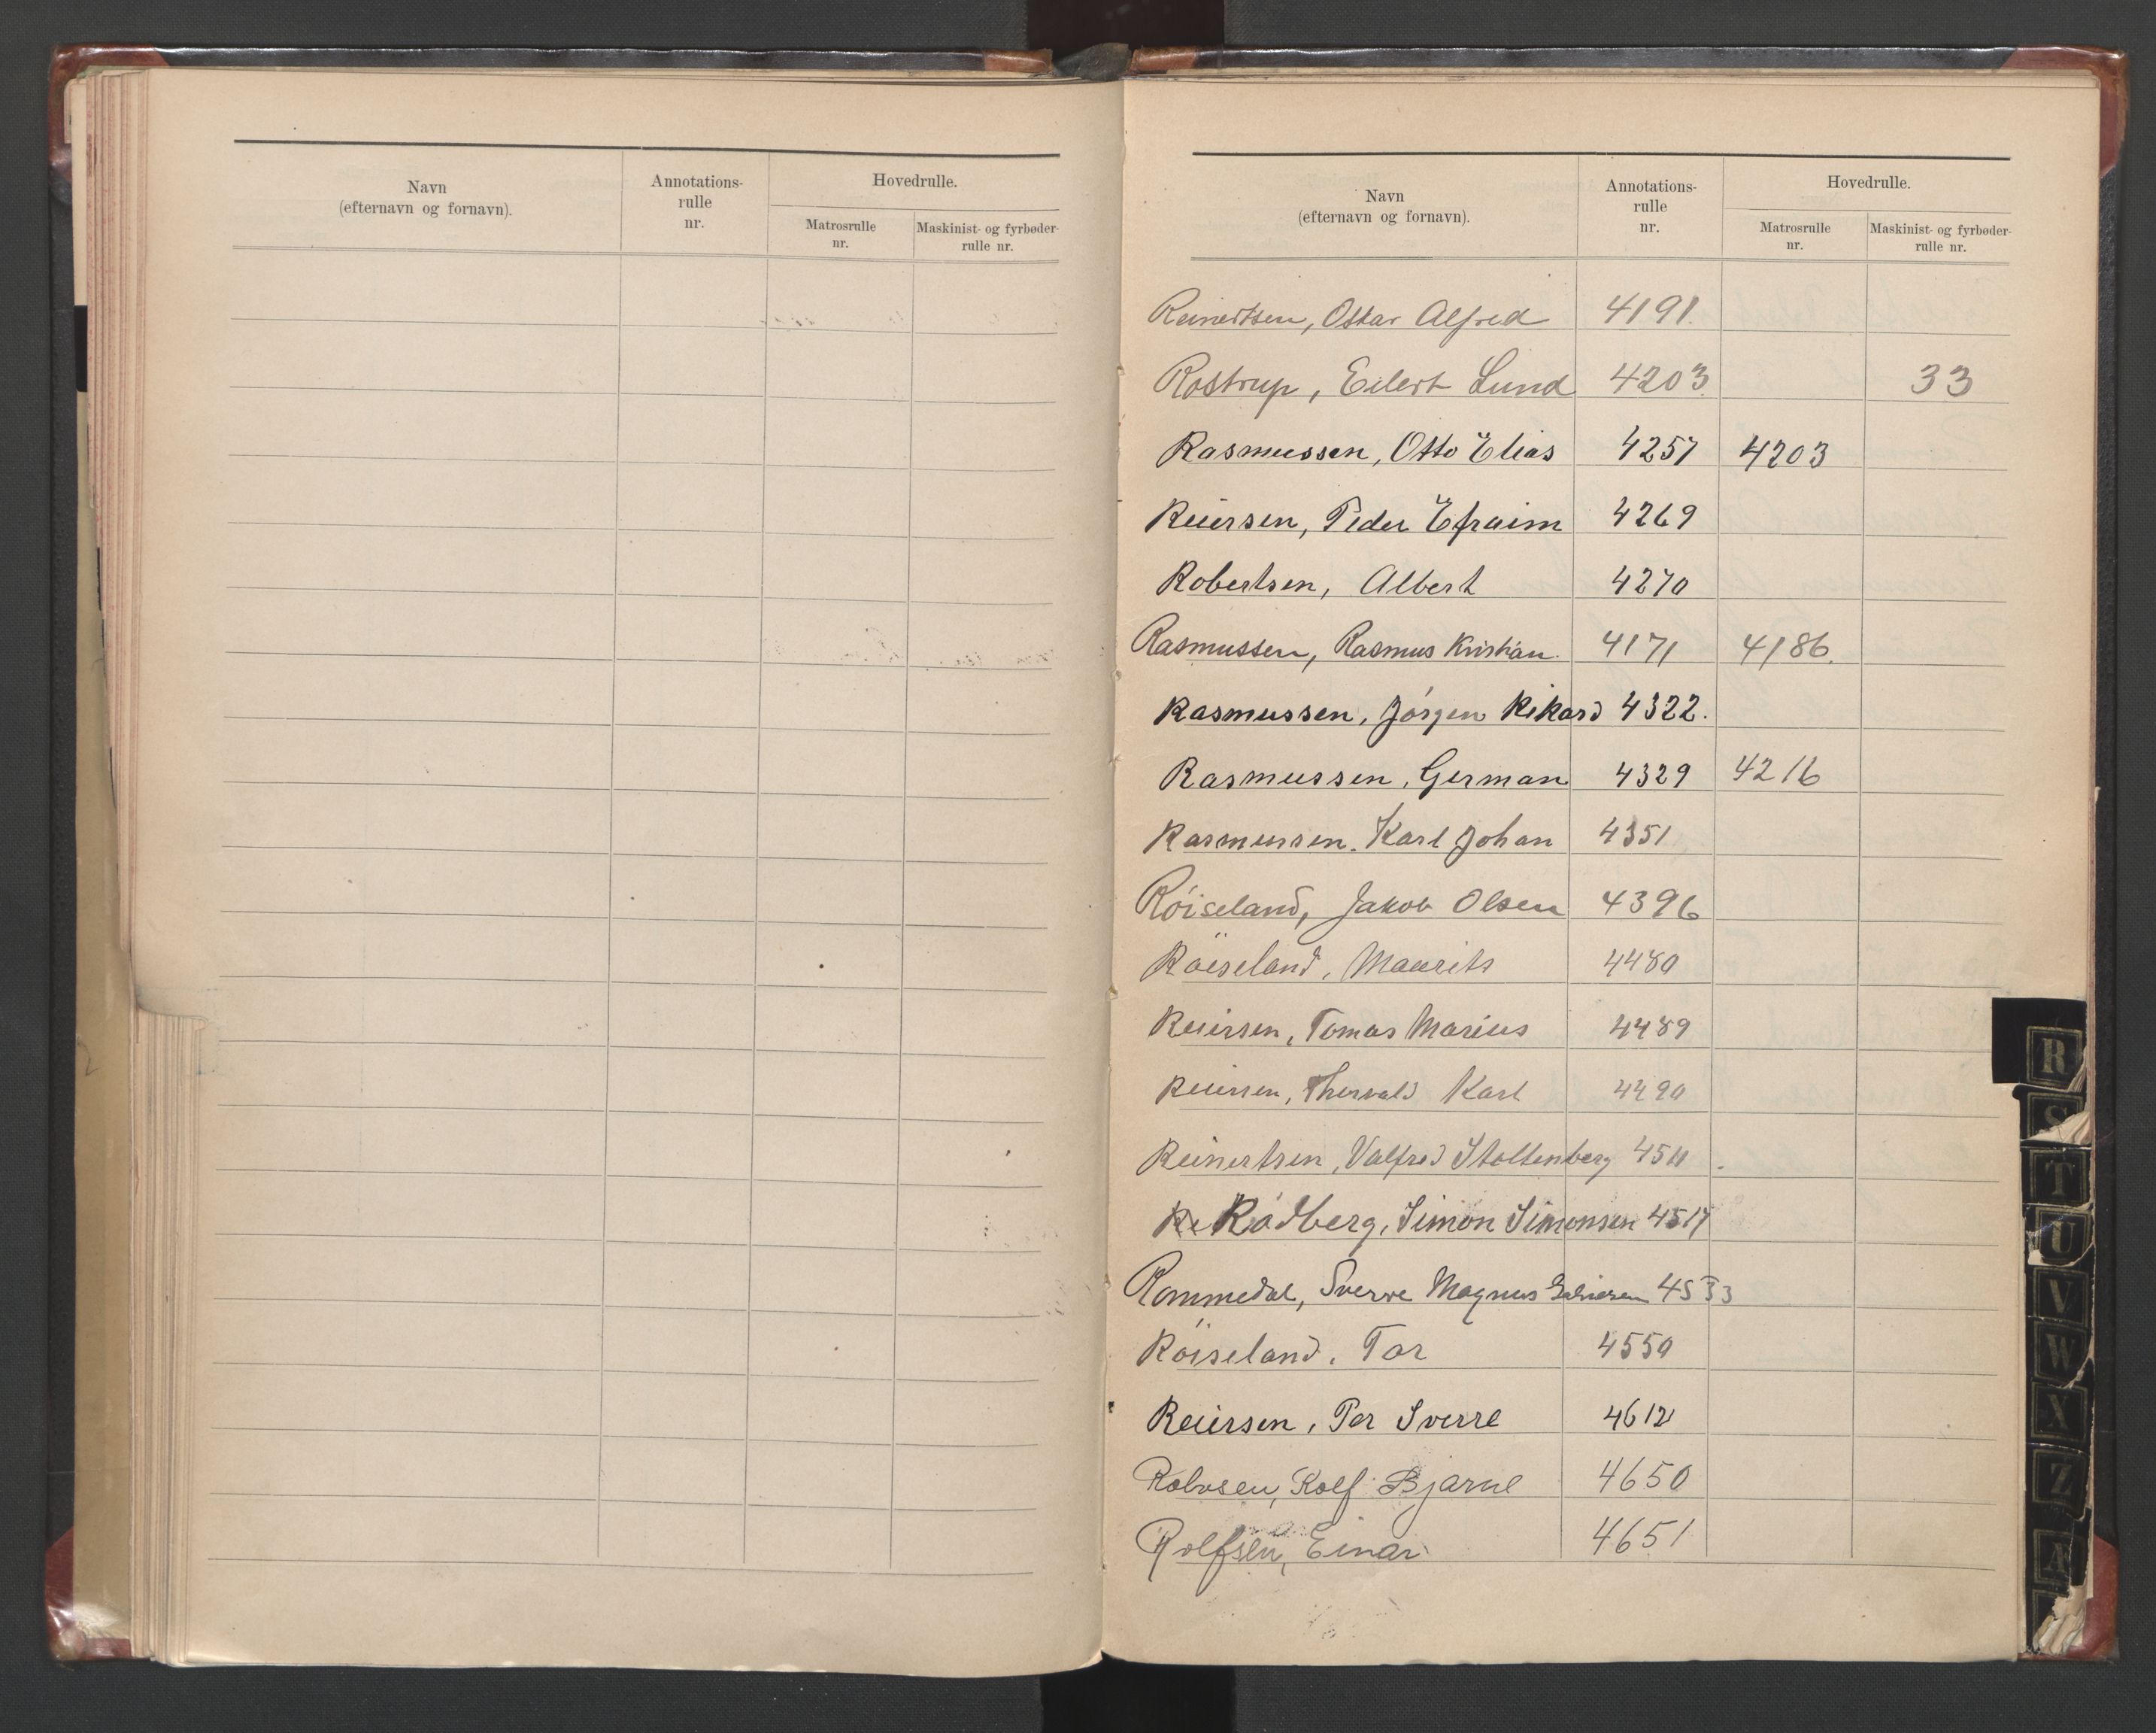 Navn
(efternavn og fornavn).
Annotations-
rulle
nr.
Hovedrulle.
Matrosrulle
nr.
Maskinist- og fyrbøder-
rulle nr.
Navn
(efternavn og fornavn).
Annotations-
rulle
nr.
Hovedrulle.
Matrosrulle
nr.
Maskinist- og fyrbøder-
rulle nr.
Reinertsen, Oskar Alfred 4191.
Rostrup, Eilert Lund 4203. 33
Rasmussen, Otto Elias 4257 4203
Reiersen, Peder Efraim 4269
Robertsen, Albert 4270
Rasmussen, Rasmus Kristian. 4171 4186.
Rasmussen, Jörgen Rikard 4322.
Rasmussen, German 4329 4216
Rasmussen. Karl Johan 4351
Röiseland, Jakob Olsen 4396
Röiseland, Maurits 4480
Reiersen, Tomas Marius 4489
Reiersen, Thorvald Karl 4490
Reinertsen, Valfred Stoltenberg 4511
Re Rödberg, Simon Simonsen 4517
Rommedal, Sverre Magnus 4533
Röiseland. Tor 4550
Reiersen, Per Sverre 4612
Rolf Bjarne 4650
Rolfsen, Einar 4651
R
S
T
U
V
W
X
Z